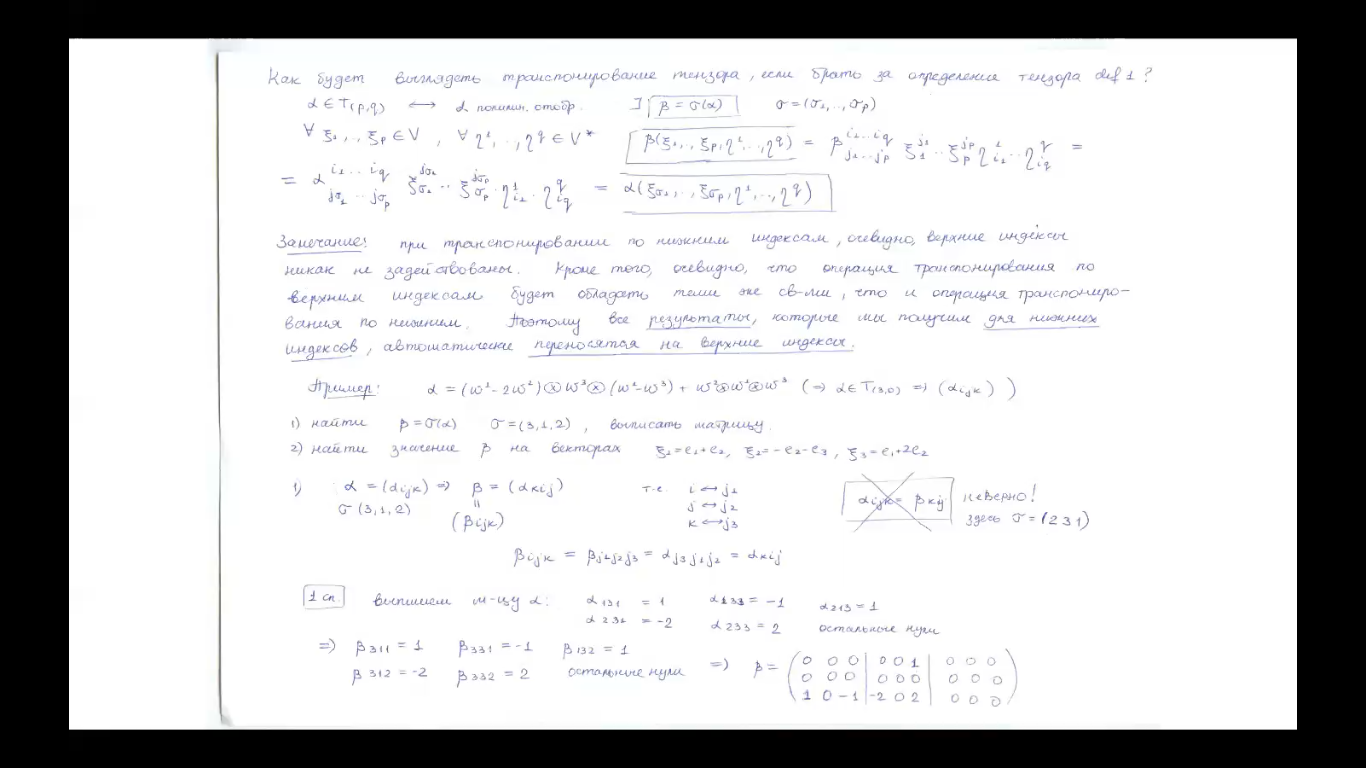 Как будет выглядеть транспонирование тензора, если брать за определение тензора def 1?
α ∈ T(p,q) ⟷ α полилин. отобр. ∃ β = σ(α) σ = (σ₁,..,σp)
∀ ξ₁,.., ξp ∈ V, ∀ η¹,.., η^q ∈ V* β(ξ₁,.., ξp, η¹,.., η^q) = β^{i₁...iq}_{j₁...jp} ξ₁^{j₁}..ξp^{jp} η¹_{i₁}..η^q_{iq} =
= α^{i₁...iq}_{jσ₁..jσp} ξσ₁^{jσ₁}..ξσp^{jσp} · η¹_{i₁}·η^q_{iq} = α(ξσ₁,.., ξσp, η¹,.., η^q)
Замечание: при транспонировании по нижним индексам, очевидно, верхние индексы
никак не задействованы. Кроме того, очевидно, что операция транспонирования по
верхним индексам будет обладать теми же св-ми, что и операция транспониро-
вания по нижним. Поэтому все результаты, которые мы получим для нижних
индексов, автоматически переносятся на верхние индексы.
Пример: α = (ω¹-2ω²)⊗ω³⊗(ω¹-ω³) + ω²⊗ω¹⊗ω³ (⇒ α ∈ T(3,0) ⇒ (αijk))
1) найти β = σ(α) σ = (3,1,2), выписать матрицу.
2) найти значение β на векторах ξ₁=e₁+e₂, ξ₂=-e₂-e₃, ξ₃=e₁+2e₂
1) α = (αijk) ⇒ β = (αkij) т.е. i ⟷ j₁ αijk = βkij неверно!
σ (3,1,2) = j ⟷ j₂ здесь σ = (2 3 1)
(βijk) k ⟷ j₃
βijk = βj₁j₂j₃ = αj₃j₁j₂ = αkij
1 сп. выпишем м-цу α: α₁₃₁ = 1 α₁₃₃ = -1 α₂₁₃ = 1
α₂₃₁ = -2 α₂₃₃ = 2 остальные нули
⇒) β₃₁₁ = 1 β₃₃₁ = -1 β₁₃₂ = 1
β₃₁₂ = -2 β₃₃₂ = 2 остальные нули ⇒) β =
0 0 0 | 0 0 1 | 0 0 0
0 0 0 | 0 0 0 | 0 0 0
1 0 -1 | -2 0 2 | 0 0 0